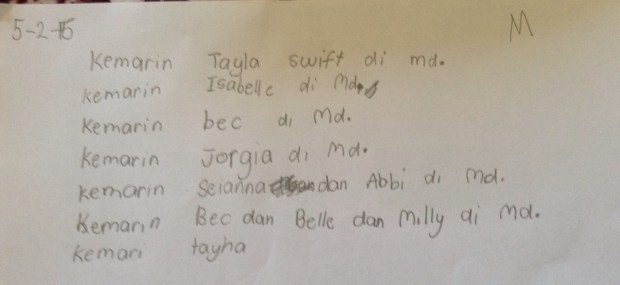 5-2-15
M
Kemarin Tayla swift di md.
kemarin Isabelle di Md.
Kemarin bec di Md.
Kemarin Jorgia di Md.
kemarin Seianna dan Abbi di Md.
Kemarin Bec dan Belle dan Milly di Md.
kemari tayha